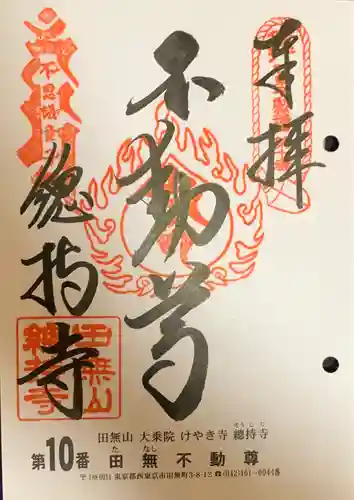 奉拝
不動尊
總持寺
不思議
田無山
總持寺
田無山 大乗院 けやき寺 總持寺
そうじじ
たなし
第10番 田無不動尊
東京都西東京市田無町3-8-12 ☎(042)461-0044番